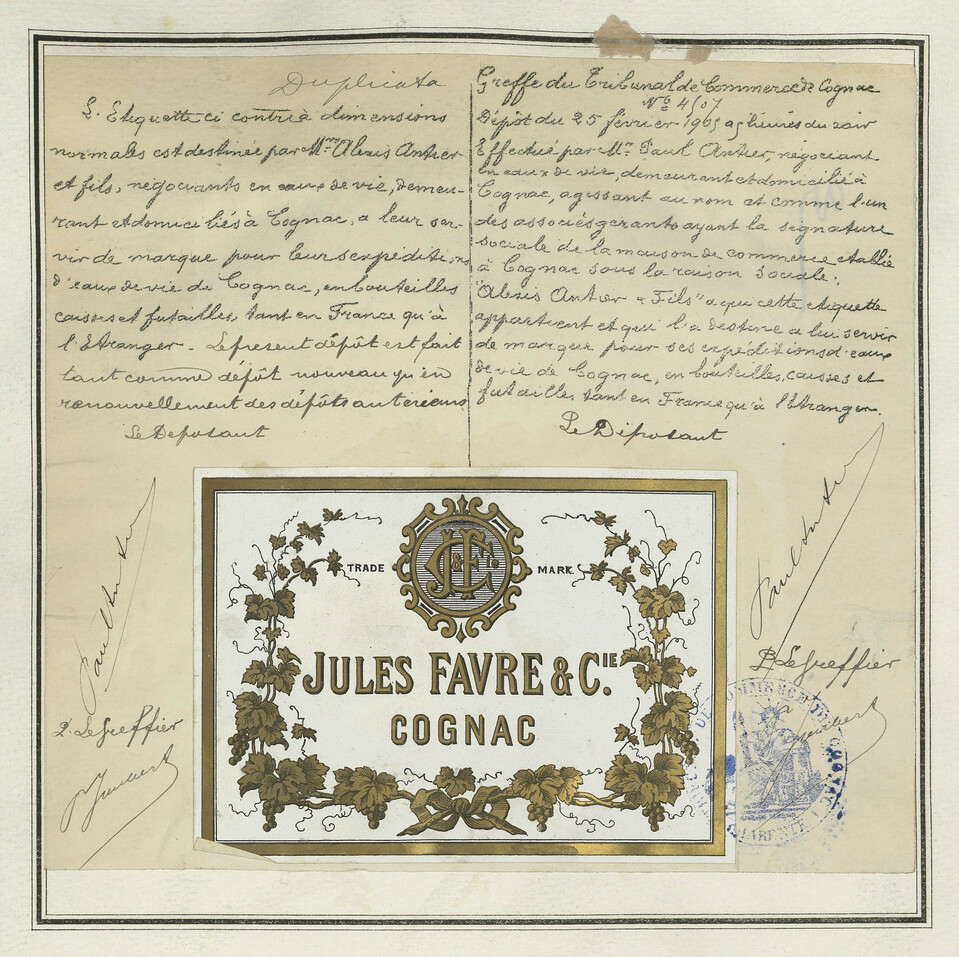 Duplicata
L'Etiquette ci contre à dimensions
normales est destinée par Mrs Alexis Antier
et fils, négociants en eaux de vie, demeu-
rant et domiciliés à Cognac, a leur ser-
vir de marque pour leurs expéditions
d'eaux de vie de Cognac, en bouteilles
caisses et futailles, tant en France qu'à
l'Etranger. Le présent dépôt est fait
tant comme dépôt nouveau qu'en
renouvellement des dépôts antérieurs
Le Déposant
Paul Antier
P. Le Greffier
Greffe du Tribunal de Commerce de Cognac
No
Dépôt du 25 février heures du soir
Effectué par Mr Paul Antier, négociant
en eaux de vie, demeurant et domicilié à
Cognac, agissant au nom et comme l'un
des associés gérants ayant la signature
sociale de la maison de commerce etablie
à Cognac sous la raison sociale:
"Alexis Antier & Fils" a qui cette etiquette
appartient et qui l'a destine a lui servir
de marque pour ses expéditions d'eaux
de vie de Cognac, en bouteilles, caisses et
futailles, tant en France qu'à l'Etranger.
Le Déposant
Paul Antier
P. Le Greffier
TRADE MARK
J F & Cie
JULES FAVRE & CIE.
COGNAC
COMMERCE DE COGNAC
CHARENTE